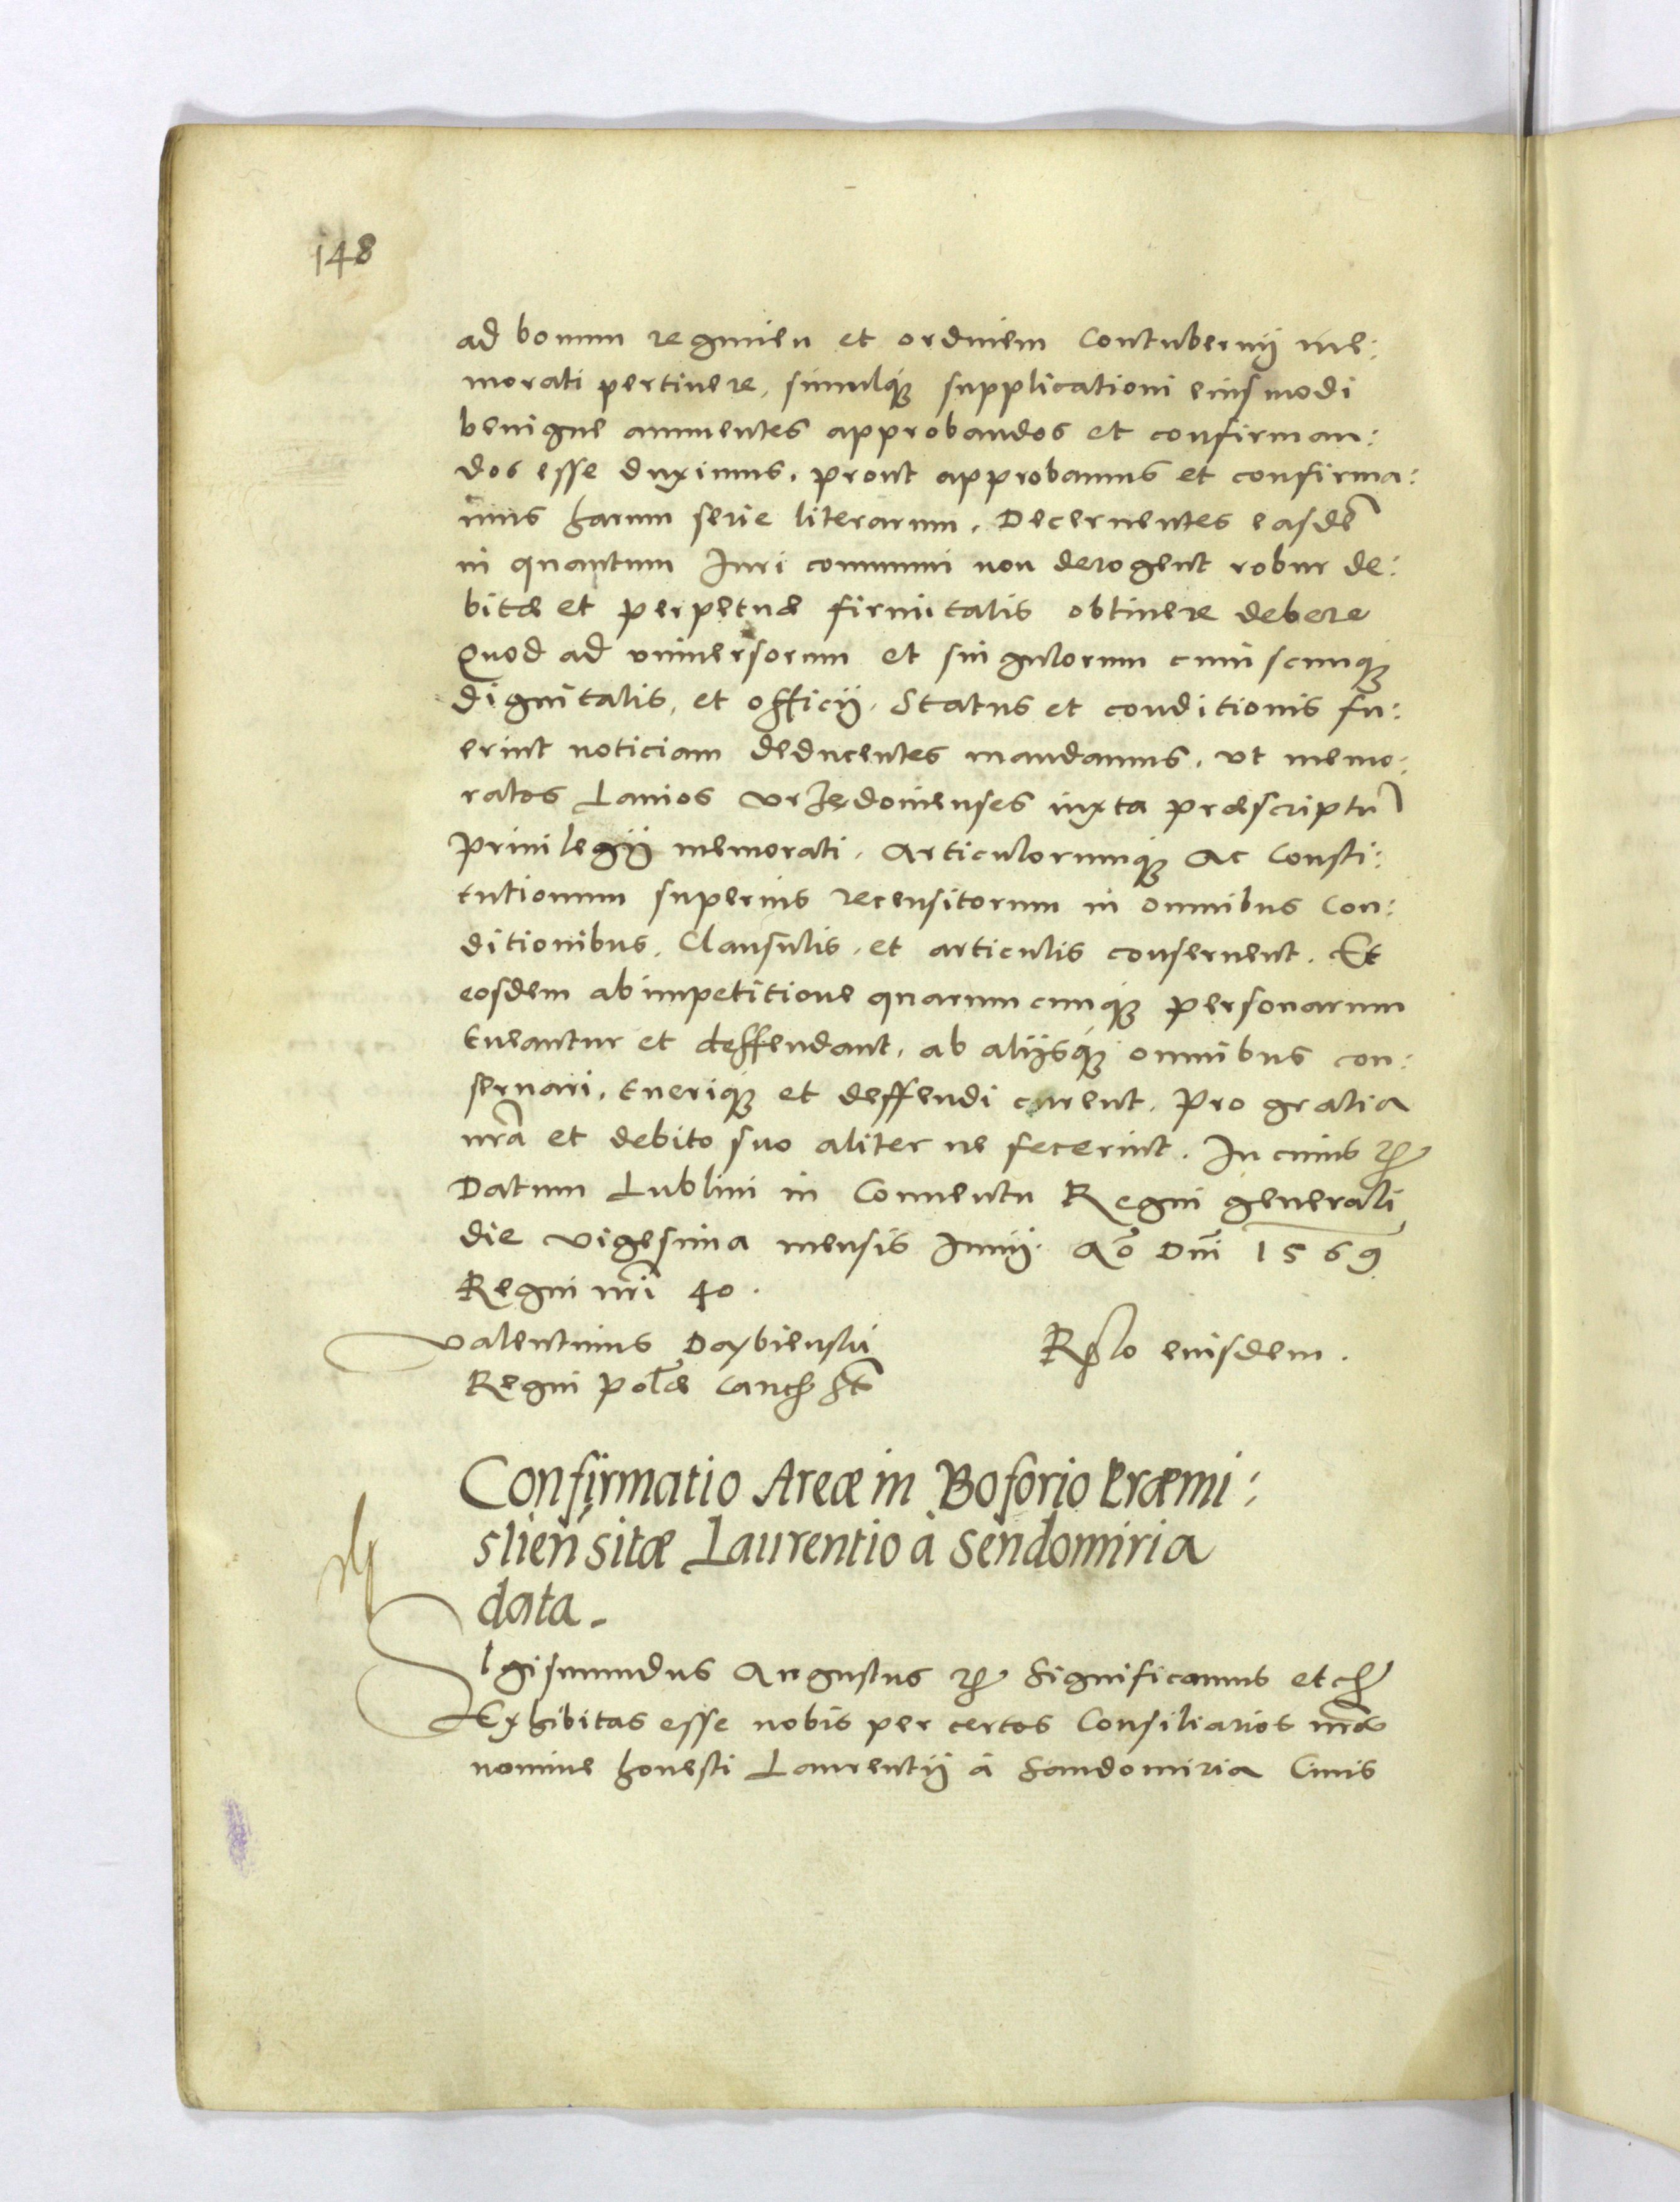 148
ad bonum regimen et ordinem Contubernij me:
morati pertinere, simulq; supplicationi eiusmodi
benigne annuentes approbandos et confirman:
dos esse duximus, prout approbamus et confirma:
mus harum serie literarum. Decernentes easdē
in quantum Juri communi non derogent robur de:
bitæ et perpetuæ firmitatis obtinere debere
Quod ad vniuersorum et singulorum cuiuscunq;
dignitatis, et officij, Status et conditionis fu:
erint noticiam deducentes mandamus, vt memo:
ratos Lanios Vrzędouienses iuxta præscriptū
Priuilegij memorati, Articulorumq; Ac Consti:
tutionum superius recensitorum in omnibus Con:
ditionibus, Clausulis, et articulis conseruent. Et
eosdem ab impetitione quarumcunq; personarum
tueantur et deffendant, ab alijsq; omnibus con:
seruari, tueriq; et deffendi curent. Pro gratia
nrā et debito suo aliter ne fecerint. In cuius etc
Datum Lublini in Conuentu Regni generali
die vigesima mensis Junij. Aō Dnī 1569
Regni nrī 40.
Valentinus Dąbienski
Regni Pol. Canc. st
Rlo eiusdem.
Confirmatio Areæ in Boforio Præmi:
slien sitæ Laurentio à Sendomiria
data.
SIgismundus Augustus etc Significamus etc
Exhibitas esse nobis per certos Consiliarios nros
nomine honesti Laurentij à Sandomiria Ciuis